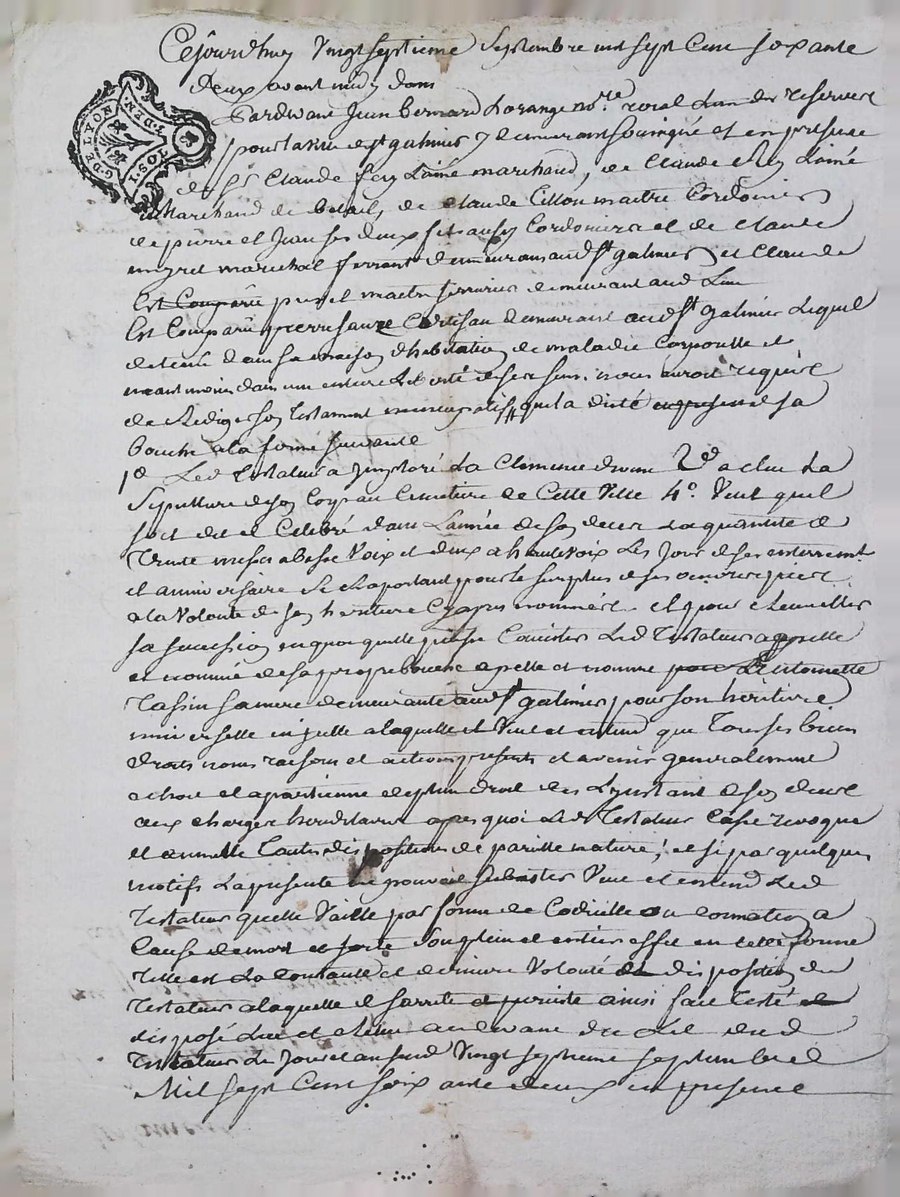 Cejourdhuy Vingt septieme Septembre mil sept Cent soixante
deux avant midy dans
G. DE LYON
I. SOL
T. DEN.
Pardevant Jean Bernard Lorange no.re royal L'un des reservés
pour la ville de st galmier y demeurant soussigné et en presence
de sr Claude fery L'ainé marchand, de Claude Rey L'ainé
Marchand de betail, de Claude Cillon maitre Cordonnier
de pierre et Jean ses deux fils aussy Cordoniers et de Claude
meyret marechal ferrant demeurans aud st galmier et Claude
Est Comparu maitre serrurier demeurant aud Lieu
Est Comparu pierre faure artisan demeurant aud st galmier Lequel
detenu dans sa maison d'habitation de maladie Corporelle et
neantmoins dans une entiere Liberté de ses sens, nous auroit requis
de Rediger son Testament nuncupatif qu'il a dicté de sa
bouche a la forme suivante
1o Led Testateur a Imploré La Clemence divine 2o a elue La
Sepulture de son Corps au Cimetiere de Cette Ville 4o. Veut quil
soit dit et Celebré dans L'année de son deces La quantité de
Trente messes a basse Voix et deux a haute voix Les Jour de ses enterremt
et anniversaire Se Raportant pour le surplus de ses oeuvres pies
a la Volonté de son heritiere Cy apres nommée et pour recueillir
sa succession en quoi quelle puisse Consister Led Testateur appellé
et nommée de sa propre bouche apelle et nomme pour Antoinette
Tassin sa mere demeurante aud st galmier pour son heritiere
universelle a laquelle il Veut et entend que Tous ses biens
droits noms raisons et actions presents et avenir generalement
echoit et apartienne de plein droit des L'Instant de son deces
aux charges hereditaires apres quoi Led Testateur Casse revoque
et annulle Toutes dispositions de pareille nature; et si par quelques
motifs La presente ne pouvoit subsister Veut et entend Led
Testateur quelle Vaille par forme de Codicille ou donation a
Cause de mort et sorte son plein et entier effet en cette forme
Telle est La constante et derniere Volonté et disposition du
Testateur a laquelle il s'arrete et persiste ainsi fait Testé et
disposé Lue et relue au devant du Lit dud
Testateur Les Jour et an susd Vingt septieme septembre
Mil sept Cent soixante deux en presence